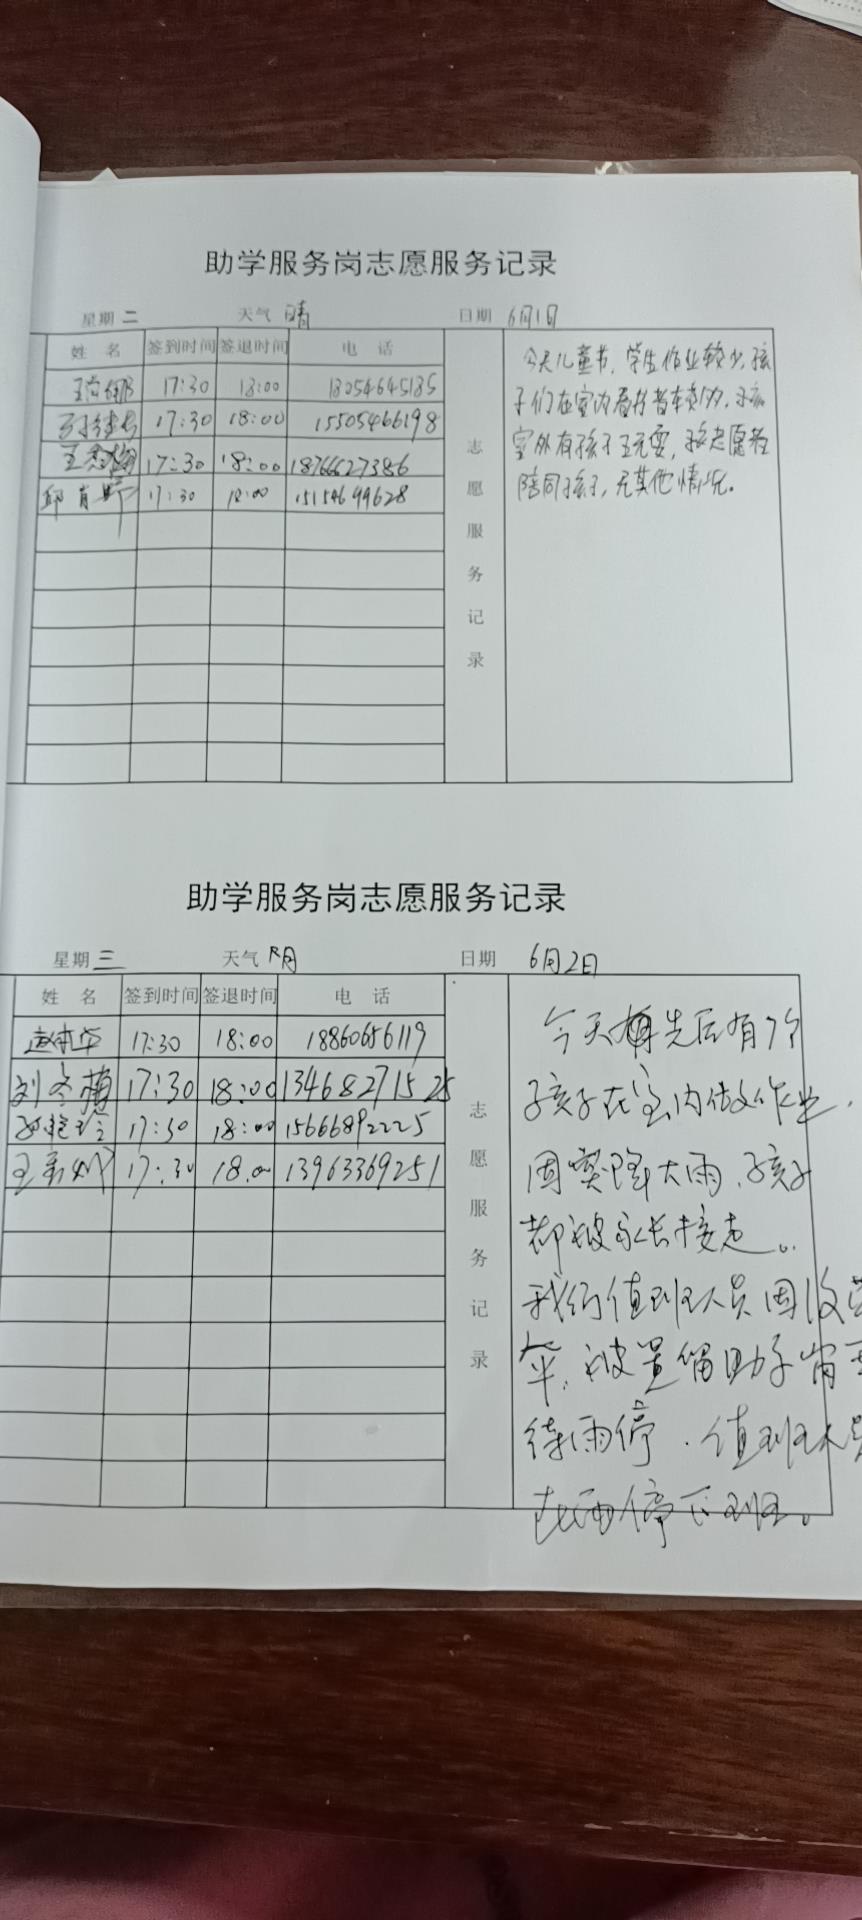 助学服务岗志愿服务记录
星期 二 天气 晴 日期 6月1日
姓 名 签到时间 签退时间 电 话
17:30 18:00 18054645185
17:30 18:00 15505466198
17:30 18:00 18766627386
邱 17:30 18:00 15154699628
志愿服务记录
今天儿童节,学生作业较少,孩
子们在室内看书
室外有孩子玩耍,志愿者
陪同孩子,无其他情况。
助学服务岗志愿服务记录
星期 三 天气 日期 6月2日
姓 名 签到时间 签退时间 电 话
赵 17:30 18:00 18860656119
刘 17:30 18:00 13468271525
17:30 18:00 15666892225
王 17:30 18:00 13963369251
志愿服务记录
今天先后有7个
孩子在室内做作业,
因突降大雨,孩子
都被家长接走。
我们值班人员因没带
伞,被置留助学岗
待雨停.值班人员
在雨停下班。